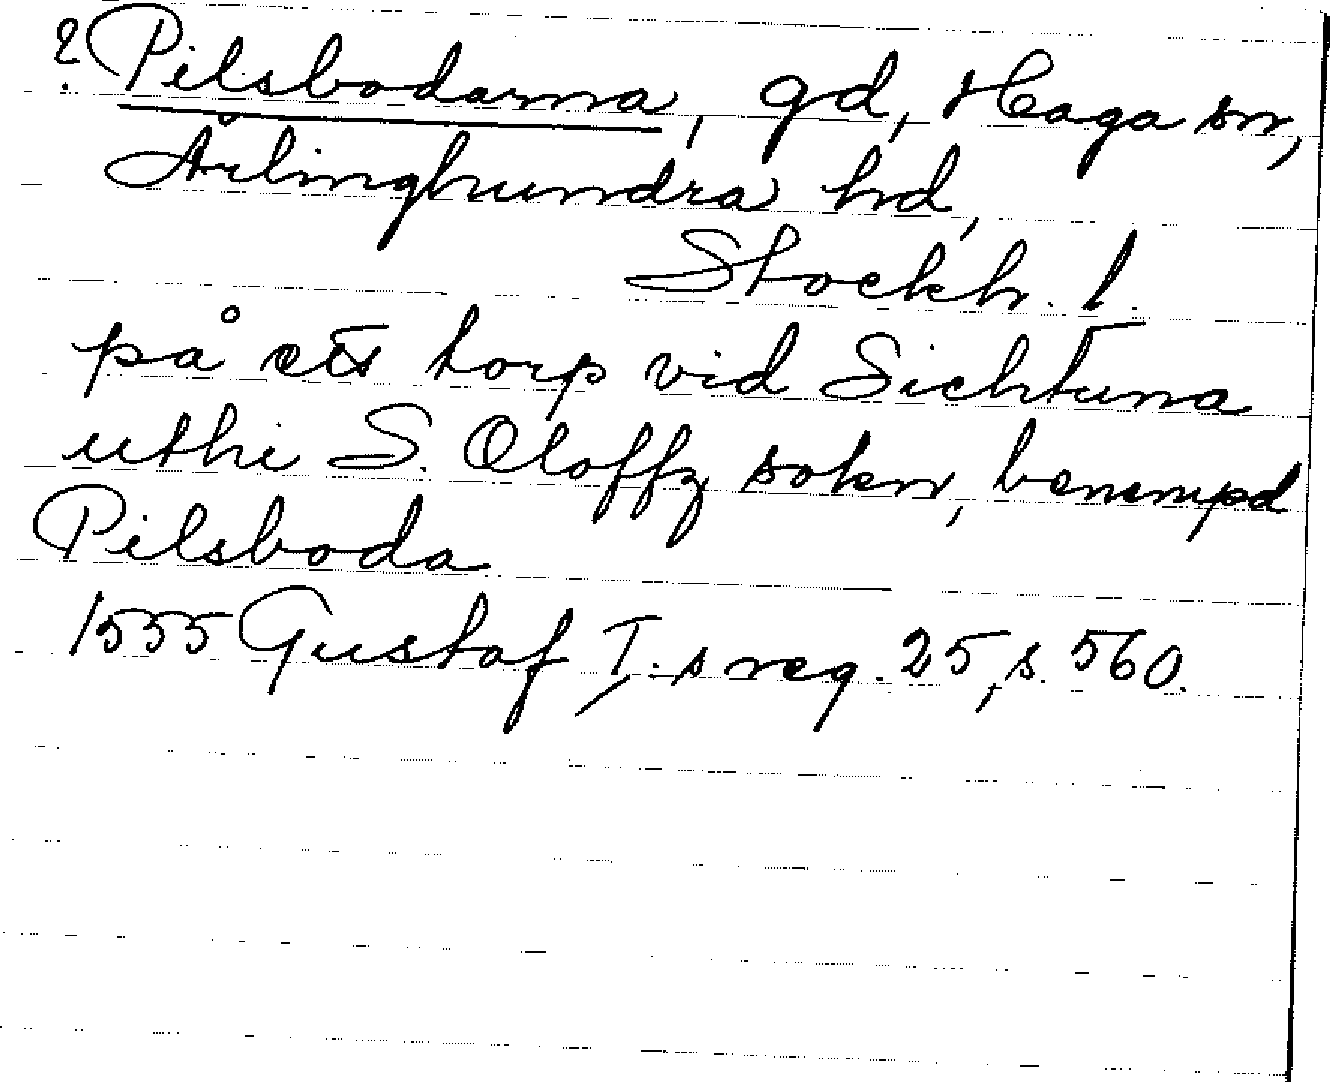 ? Pilsbodarna, gd, Haga sn,
Ärlinghundra hd,
Stockh. l.
på ett torp vid Sichtuna
uthi S. Oloffz sokn, benempd
Pilsboda
1555 Gustaf I:s reg. 25, s. 560.